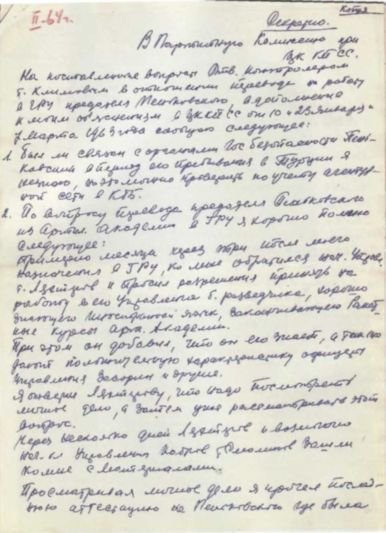 Копия
II-64г.
Секретно.
В Партийную Комиссию при
ЦК КПСС.
На поставленные вопросы Отв. контролером
т. Климовым в отношении перевода на работу
в ГРУ предателя Пеньковского, в дополнение
к моим объяснениям в ЦК КПСС от 10 и 25 января и
7 марта 1963 года сообщаю следующее:
1. Был ли связан с органами Гос безопасности Пень-
ковский в период его пребывания в Турции я
не знаю, возможно проверить по учету агентур-
ной сети в КГБ.
2. По вопросу перевода предателя Пеньковского
из Артил. Академии в ГРУ я хорошо помню
следующее:
Примерно месяца через три после моего
назначения в ГРУ, ко мне обратился нач. Управ.
и просил разрешения принять на
работу в его Управление б. разведчика, хорошо
знающего английский язык, закончившего Ракет-
ные курсы арт. Академии.
При этом он добавил, что он его знает, а также
дают положительную характеристику офицеры
Управления и другие.
Я ответил, что надо посмотреть
личное дело, а затем уже рассматривать этот
вопрос.
Через несколько дней и
нач. Управления зашли
ко мне с материалами.
Просматривая личное дело я прочел послед-
нюю аттестацию на Пеньковского где была